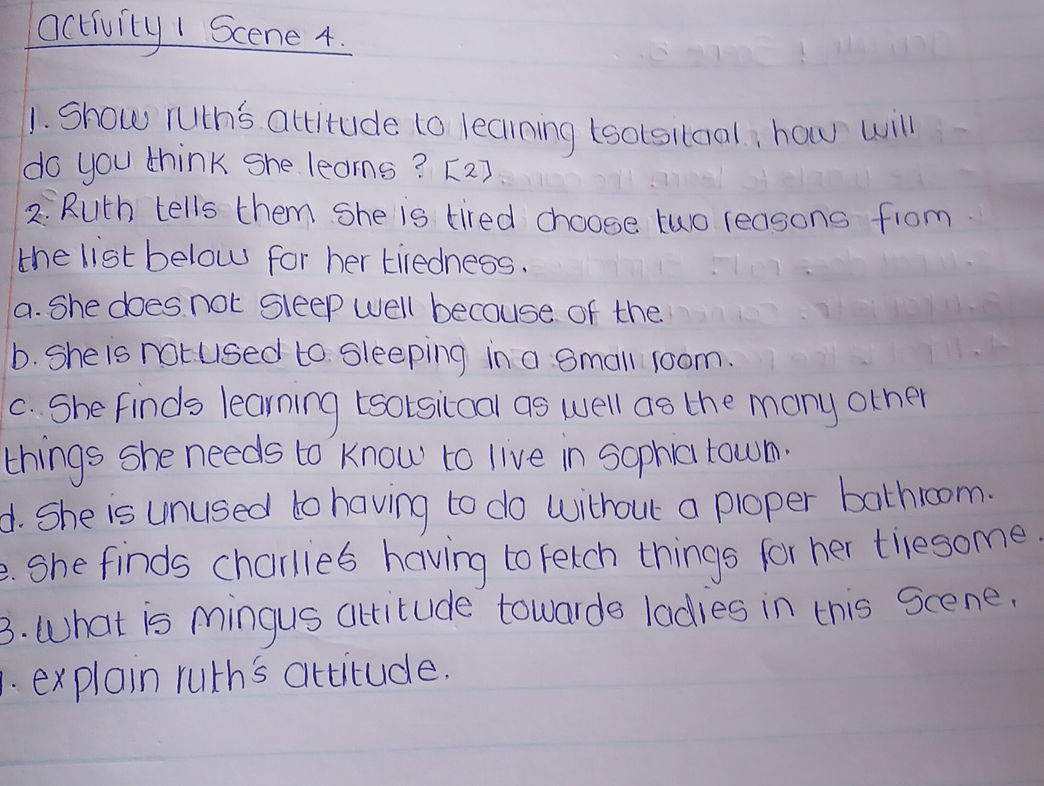 activity 1 Scene 4.
1. Show ruth's attitude to learning tsotsitaal, how will
do you think she learns? [2]
2. Ruth tells them she is tired choose two reasons from
the list below for her tiredness.
a. She does not sleep well because of the
b. She is not used to sleeping in a small room.
c. She finds learning tsotsitaal as well as the many other
things she needs to know to live in sophiatown.
d. She is unused to having to do without a proper bathroom.
e. She finds charlie's having to fetch things for her tiresome.
3. What is mingus attitude towards ladies in this scene.
. explain ruth's attitude.